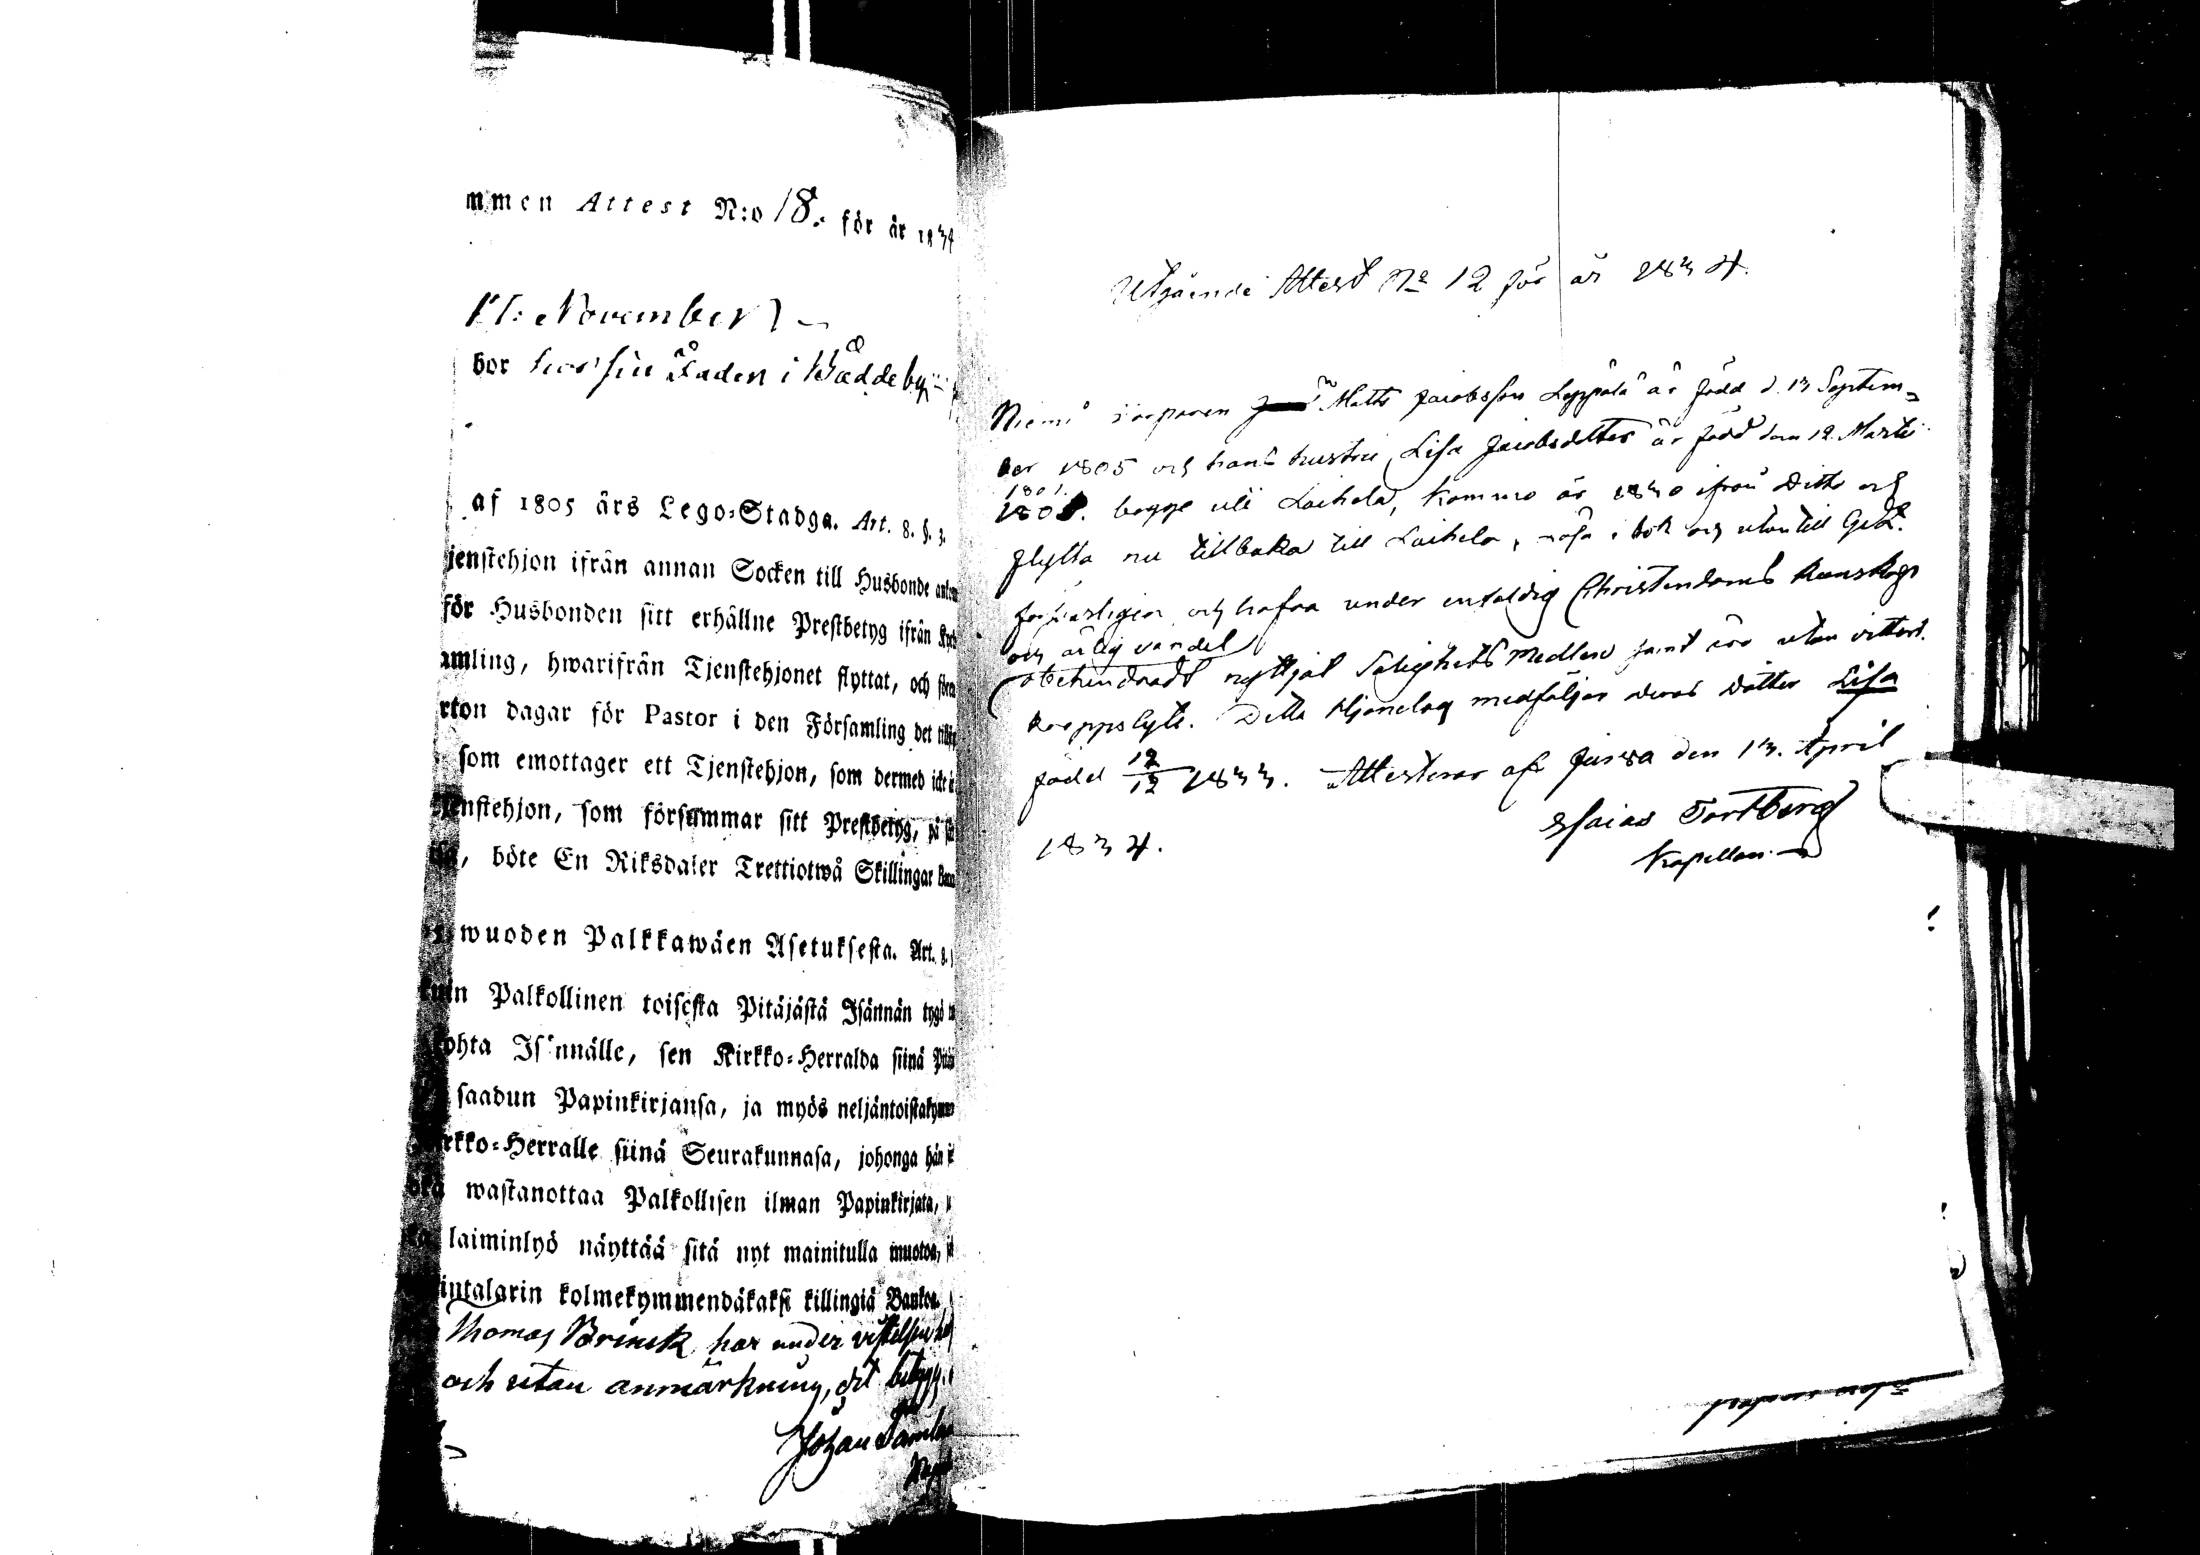 mmen Attest N:o 18. för år 1834
17: November
bor hos sin Fader i Wådde by
af 1805 års Lego-Stadga. Art. 8. §. 3.
jenstehjon ifrån annan Socken till Husbonde
för Husbonden sitt erhållne Prestbetyg ifrån
amling, hwarifrån Tjenstehjonet flyttat, och
rton dagar för Pastor i den Församling det
som emottager ett Tjenstehjon, som dermed icke
jenstehjon, som försummar sitt Prestbetyg, på
böte En Riksdaler Trettiotwå Skillingar
wuoden Palkkawäen Asetuksesta. Art. 8.
kuin Palkollinen toisesta Pitäjästä Isännän tygö
kohta Isännälle, sen Kirkko-Herralda siinä
saadun Papinkirjansa, ja myös neljäntoista
irkko-Herralle siinä Seurakunnasa, johonga hän
wastanottaa Palkollisen ilman Papinkirjata,
laiminlyö näyttää sitä nyt mainitulla muotoa,
intalarin kolmekymmendäkaksi killingiä Bankoa.
Thomas Brinck har under vistelsen
och utan anmärkning, det betygg.
Johan
Utgående Attest No 12 för år 1834.
Niemi Matts Jacobsson Leppälä är född d. 13 Septem-
ber 1805 och hans hustru, Lisa Jacobsdotter är född den 12. Martii
1801.
begge uti Laihela, komne år 1830 ifrån Ditto och
flytta nu tillbaka till Laihela, läsa i bok och utantill
försvarligen och hafva under enfaldig Christendoms kunskap
och ärlig vandel
obehindradt nyttjat Salighets Medlen samt äro utan vitterl.
kroppslyte. Detta Hjonelag medföljer deras dotter Lisa
född 12/12 1833. Attesteras af Jurva den 13. April
1834.
Esaias Fortberg
Kapellan